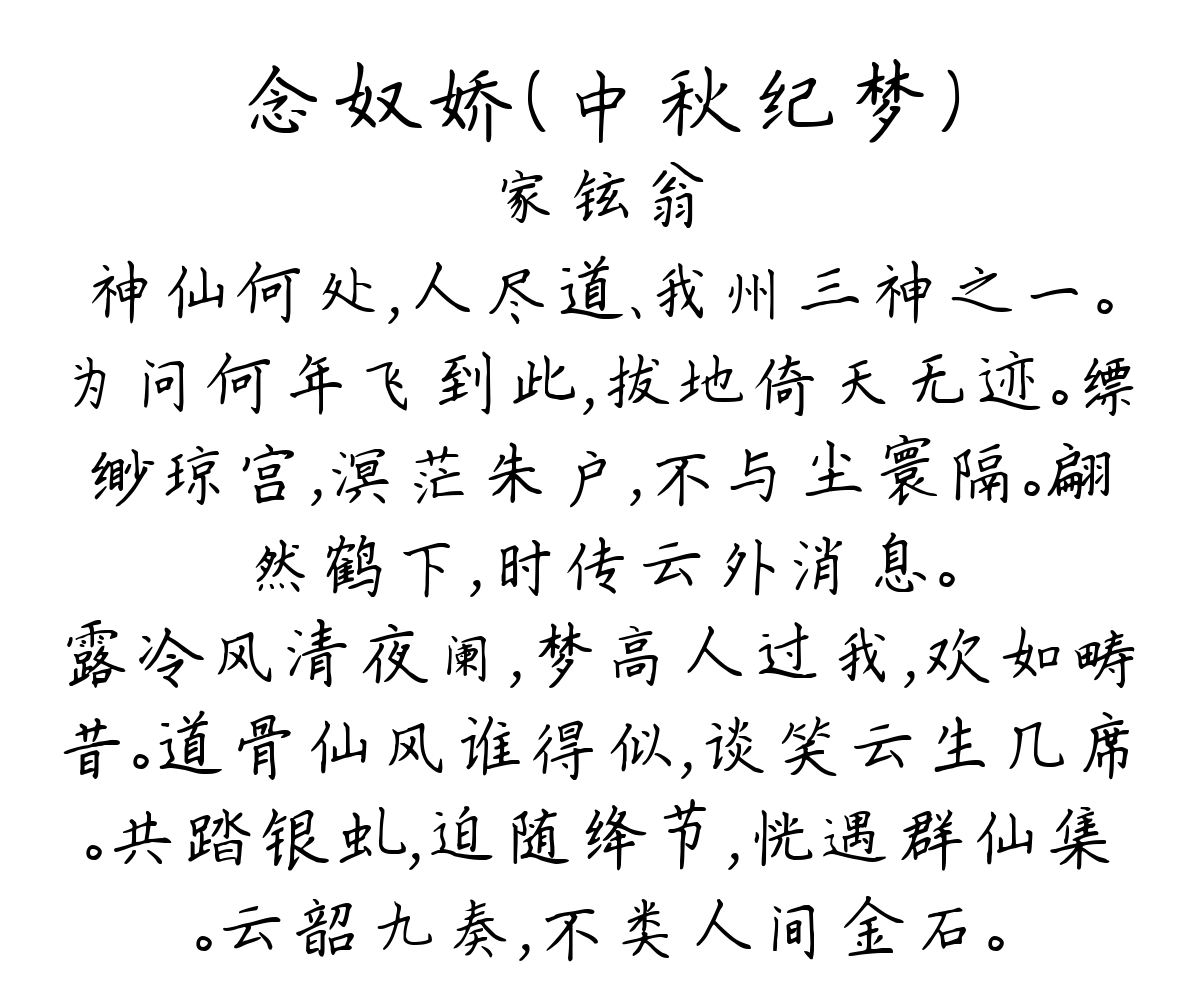 念奴娇(中秋纪梦)
家铉翁
神仙何处,人尽道、我州三神之一。
为问何年飞到此,拔地倚天无迹。缥
缈琼宫,溟茫朱户,不与尘寰隔。翩
然鹤下,时传云外消息。
露冷风清夜阑,梦高人过我,欢如畴
昔。道骨仙风谁得似,谈笑云生几席
。共踏银虬,迫随绛节,恍遇群仙集
。云韶九奏,不类人间金石。